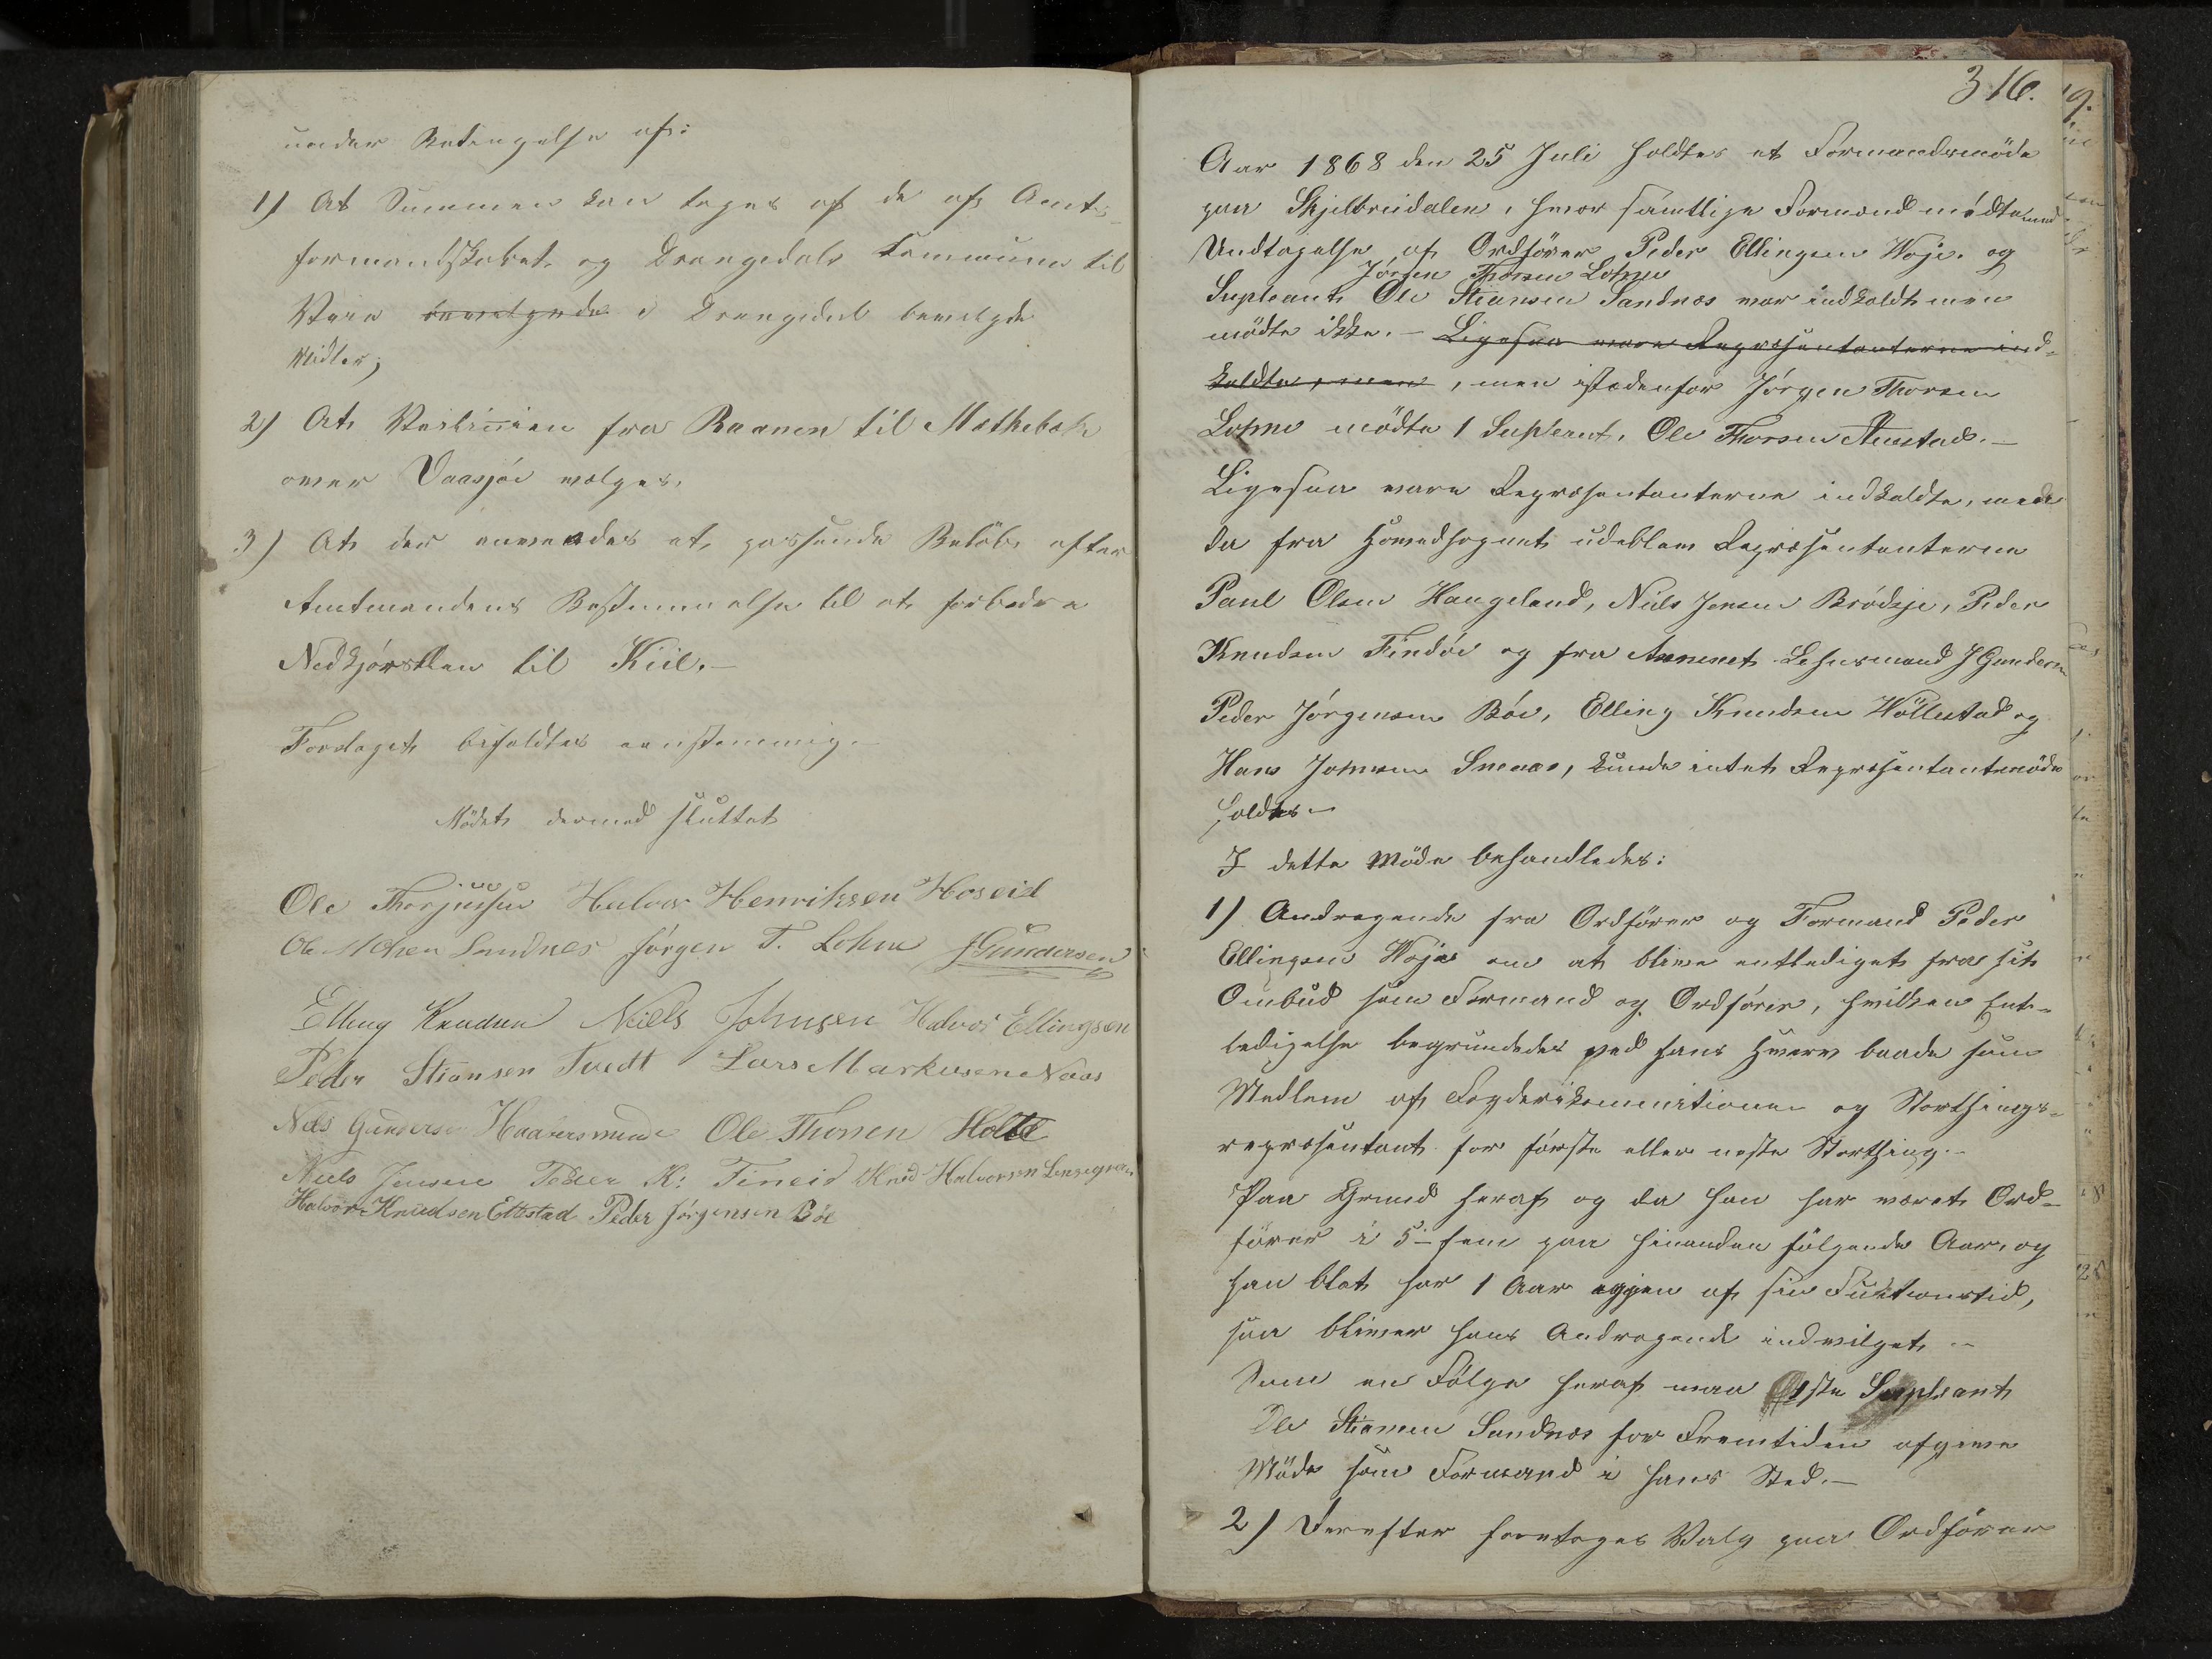 under Betingelse af:
1) At Summen kan tages af de af Amts-
formandskabet og Drangedals Kommune til
Veie bevelgede i Drangedal bevilgede
Midler;
2) At Veilinien fra Raanen til Mæthebæk
over Vaasjøe vælges.
3) At der anvendes et passende Beløb efter
Amtmandens Bestemmelse til at forbedre
Nedkjørselen til Kiil.-
Forslaget bifaldtes eenstemmig.
Mødet dermed sluttet
Ole Thorjussen Halvor Henriksen Hoseid
Ole Sandnes Jørgen T. Lohne JGundersen
Elling Knudsen Neels Johnsen Halvor Ellingsen
Peder Stiansen Tvedt Lars Markusen Naas
Nels Gundersen Ole Thorsen Holte
Niels Jensen Peder K: Fineid Knud Halvorsen
Halvor Knudsen Ettestad Peder Jørgensen Bøe
316.
Aar 1868 den 25 Juli holdtes et Formandsmøde
paa Skjelbreidalen, hvor samtlige Formænd mødte med
Undtagelse af Ordfører Peder Ellingsen Woje. og
Jørgen Thorsen Lohne
Supleant Ole Stiansen Sandnæs var indkaldt men
mødte ikke. - Ligesaa vare Repræsentanterne ind-
kaldte, men , men istedenfor Jørgen Thorsen
Lohne mødte 1 Suplent, Ole Thorsen -
Ligesaa vare Repræsentanterne indkaldte, men
da fra Hovedsognet udebleve Repræsentanterne
Paul Olsen Haugeland, Niels Jensen Brødsje, Peder
Knudsen Findøe og fra Annexet Lehnsmand J Gundersen
Peder Jørgensen Bøe, Elling Knudsen og
Hans Johnsen kunde intet Repræsentantmøde
holdes-
I dette Møde behandledes:
1) Andragende fra Ordfører og Formand Peder
Ellingsen Woje om at blive entlediget fra sit
Ombud som Formand og Ordfører, hvilken Ent-
ledigelse begrundedes ved hans Hverv baade som
Medlem af Fogderikommitionen og Storthings-
repræsentant for første eller næste Storthing.-
Paa Grund heraf og da han har været Ord-
fører i 5- fem paa hinanden følgende Aar, og
han blot har 1 Aar igjen af sin Funktionstid,
saa bliver hans Andragende indvilget -
Som en Følge heraf maa 1ste Supleant
Ole Stiansen Sandnæs for Fremtiden afgive
Møde som Formand i hans Sted.-
2) Derefter foretoges Valg paa Ordfører